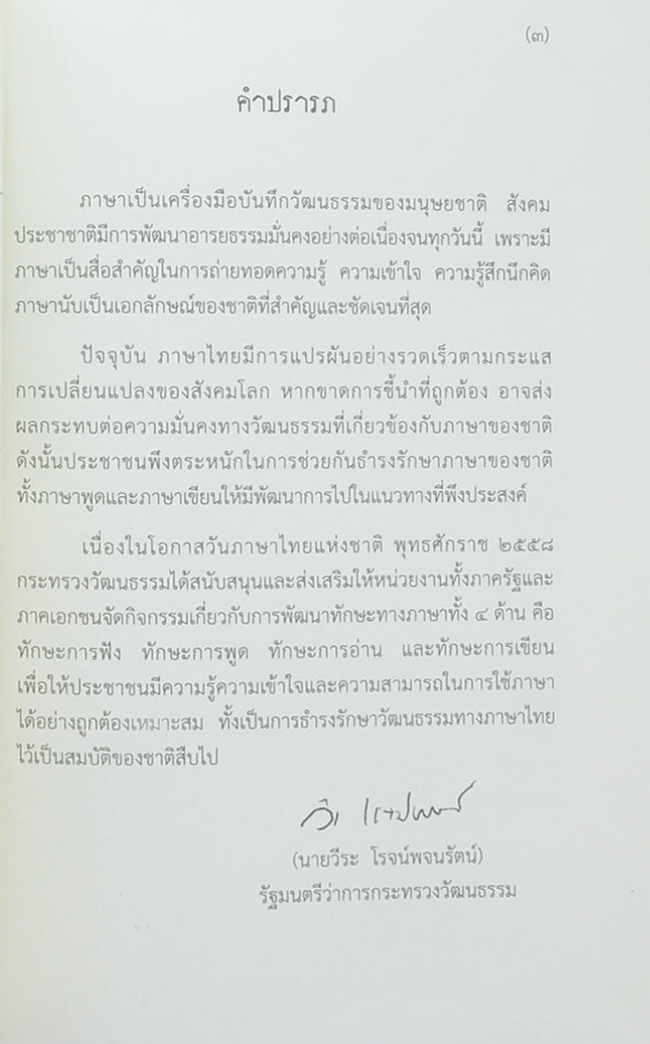 (๓)
คำปรารภ
ภาษาเป็นเครื่องมือบันทึกวัฒนธรรมของมนุษยชาติ สังคม
ประชาชาติมีการพัฒนาอารยธรรมมั่นคงอย่างต่อเนื่องจนทุกวันนี้ เพราะมี
ภาษาเป็นสื่อสำคัญในการถ่ายทอดความรู้ ความเข้าใจ ความรู้สึกนึกคิด
ภาษานับเป็นเอกลักษณ์ของชาติที่สำคัญและชัดเจนที่สุด
ปัจจุบัน ภาษาไทยมีการแปรผันอย่างรวดเร็วตามกระแส
การเปลี่ยนแปลงของสังคมโลก หากขาดการชี้นำที่ถูกต้อง อาจส่ง
ผลกระทบต่อความมั่นคงทางวัฒนธรรมที่เกี่ยวข้องกับภาษาของชาติ
ดังนั้นประชาชนพึงตระหนักในการช่วยกันธำรงรักษาภาษาของชาติ
ทั้งภาษาพูดและภาษาเขียนให้มีพัฒนาการไปในแนวทางที่พึงประสงค์
เนื่องในโอกาสวันภาษาไทยแห่งชาติ พุทธศักราช ๒๕๕๘
กระทรวงวัฒนธรรมได้สนับสนุนและส่งเสริมให้หน่วยงานทั้งภาครัฐและ
ภาคเอกชนจัดกิจกรรมเกี่ยวกับการพัฒนาทักษะทางภาษาทั้ง ๔ ด้าน คือ
ทักษะการฟัง ทักษะการพูด ทักษะการอ่าน และทักษะการเขียน
เพื่อให้ประชาชนมีความรู้ความเข้าใจและความสามารถในการใช้ภาษา
ได้อย่างถูกต้องเหมาะสม ทั้งเป็นการธำรงรักษาวัฒนธรรมทางภาษาไทย
ไว้เป็นสมบัติของชาติสืบไป
(นายวีระ โรจน์พจนรัตน์)
รัฐมนตรีว่าการกระทรวงวัฒนธรรม